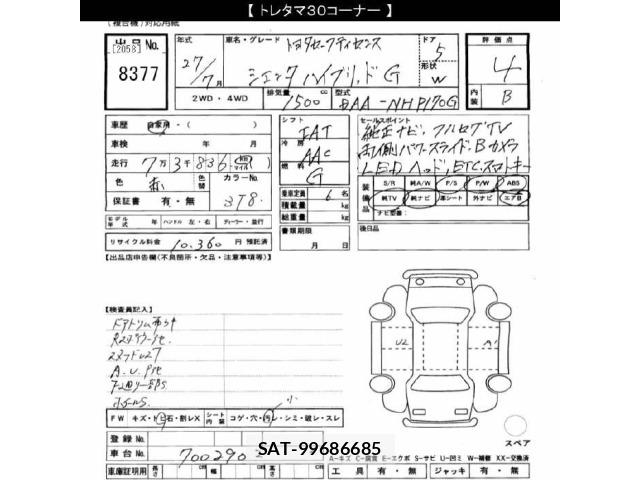 【 トレタマ30コーナー 】
(複合機)対応用紙
出品 No. [2058]
8377
年式 27/7月
車名・グレード トヨタセーフティセンス
シエンタ ハイブリッド G
ドア 5
形状 W
評価点 4
内装 B
2WD・4WD
排気量 1500 cc
型式 DAA-NHP170G
車歴 自家用・( )
シフト IAT
セールスポイント
純正ナビ、フルセグTV
両側パワースライド、Bカメラ
LEDヘッド、ETC、スマートキー
車検 年 月
冷房 AAC
走行 7万3千836 km マイル
燃料 G
色 赤
色替
カラーNo. 3T8
保証書 有・無
乗車定員 6 名
積載量 kg
総重量 kg
装備品 S/R 純A/W P/S P/W ABS
純TV 純ナビ 革シート 外ナビ エアB
ナビ型番:
モデル年式 年 ハンドル 左・右 ディーラー・並行
書類期限 月 日
後日品
リサイクル料金 10,360 円 預託済
【出品店申告欄(不良箇所・欠品・注意事項等)】
【検査員記入】
A.U.Pte
U2
A1
FW キズ・トビ石・割レX シート内装 コゲ・穴・汚レ・シミ・破レ・スレ
小
スペア
登録No.
車台No. 700290
SAT-99686685
A-キズ C-腐食 E-エクボ S-サビ U-凹ミ W-補修 XX-交換済
車庫証明用 長さ cm 幅 cm 高さ
工具 有・無 ジャッキ 有・無